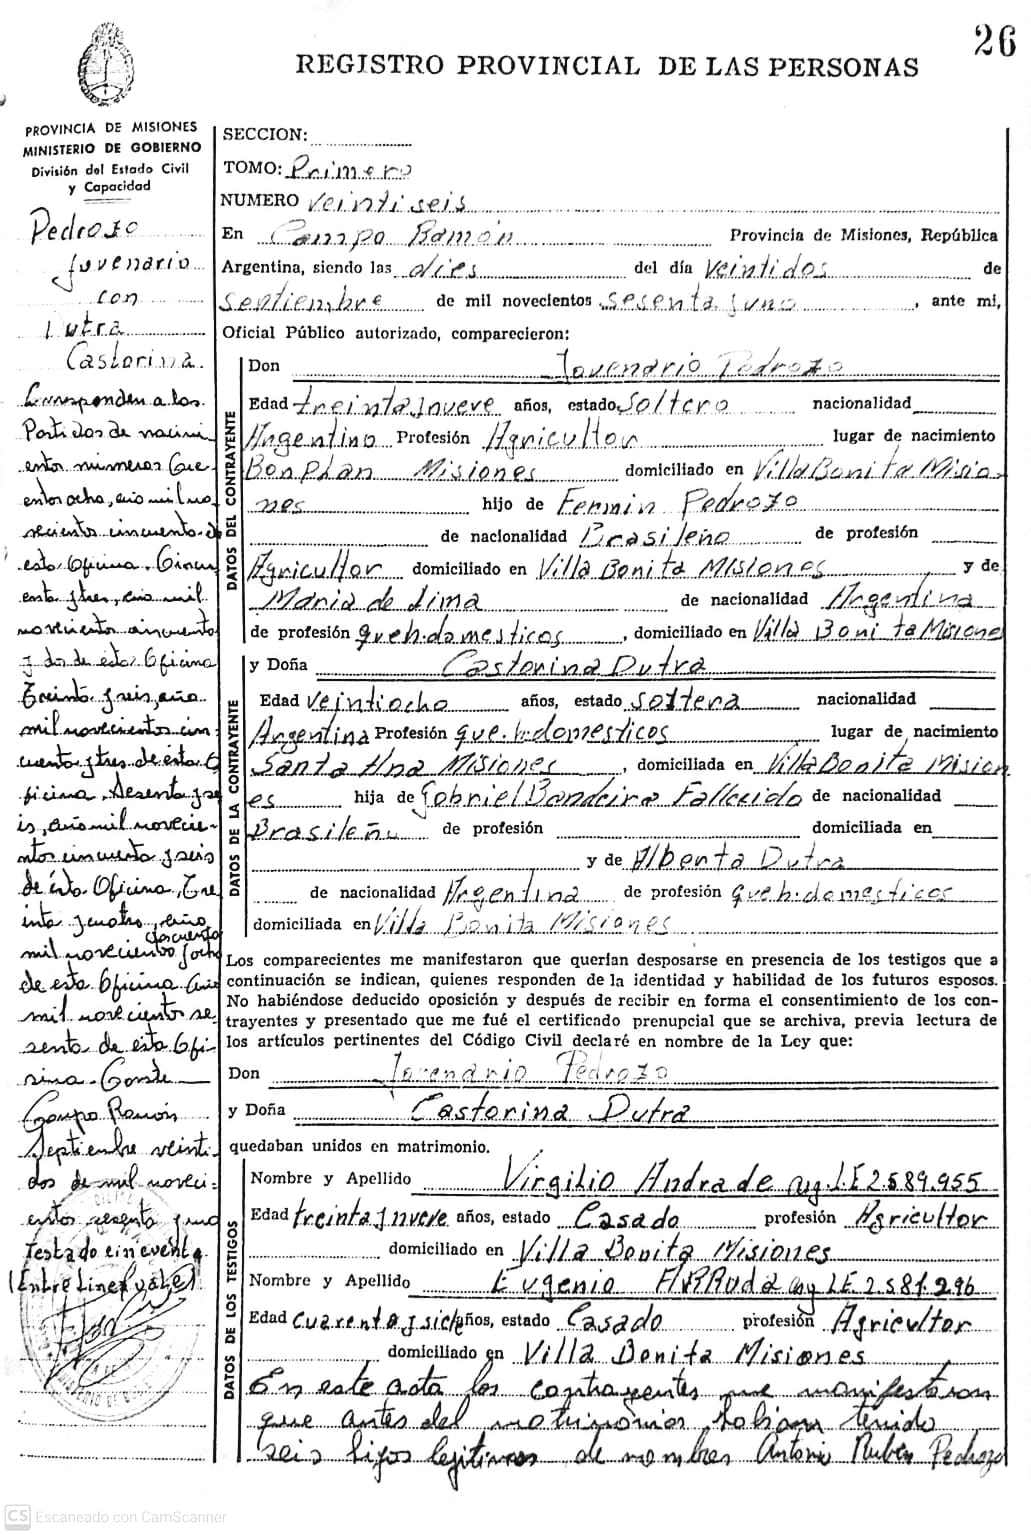 26
REGISTRO PROVINCIAL DE LAS PERSONAS
PROVINCIA DE MISIONES
MINISTERIO DE GOBIERNO
División del Estado Civil
y Capacidad
Pedrozo
Juvenario
con
Dutra
Castorina.
Corresponden a los
Partidos de naci
ento números
entos ocho, año mil no
vecientos cincuenta, d
esta Oficina. Cincu
enta y tres, año mil
novecientos cincuenta
y dos de esta Oficina
Treinta y seis, año
mil novecientos cin
cuenta y tres de esta O
ficina, Sesenta y se
is, año mil novecie-
ntos cincuenta y seis
de ésta Oficina, Tre
inta y cuatro, año
cincuenta
mil novecientos y ocho
de esta Oficina
mil novecientos se
senta de esta Ofi
sina. Conste
Campo Ramón
Septiembre veinti
dos de mil noveci-
entos sesenta y uno
Testado cincuenta
(Entre Linea vale)
SECCION:
TOMO: Primero
NUMERO veintiseis
En Campo Ramón Provincia de Misiones, República
Argentina, siendo las dies del día veintidos de
septiembre de mil novecientos sesenta y uno, ante mi,
Oficial Público autorizado, comparecieron:
DATOS DEL CONTRAYENTE
Don Jovenario Pedrozo
Edad treinta y nueve años, estado Soltero nacionalidad
Argentino Profesión Agricultor lugar de nacimiento
Bonplan Misiones domiciliado en Villa Bonita Misio-
nes hijo de Fermin Pedrozo
de nacionalidad Brasileño de profesión
Agricultor domiciliado en Villa Bonita Misiones y de
Maria de Lima de nacionalidad Argentina
de profesión queh.domesticos, domiciliado en Villa Bonita Misione
DATOS DE LA CONTRAYENTE
y Doña Castorina Dutra
Edad veintiocho años, estado soltera nacionalidad
Argentina Profesión que.h.domesticos lugar de nacimiento
Santa Ana Misiones, domiciliada en Villa Bonita Mision
es hija de Gobriel Bandeira Fallecido de nacionalidad
Brasileñu de profesión domiciliada en
y de Alberta Dutra
de nacionalidad Argentina de profesión queh.domesticos
domiciliada en Villa Bonita Misiones
Los comparecientes me manifestaron que querían desposarse en presencia de los testigos que a
continuación se indican, quienes responden de la identidad y habilidad de los futuros esposos.
No habiéndose deducido oposición y después de recibir en forma el consentimiento de los con-
trayentes y presentado que me fué el certificado prenupcial que se archiva, previa lectura de
los artículos pertinentes del Código Civil declaré en nombre de la Ley que:
Don Jovenario Pedrozo
y Doña Castorina Dutra
quedaban unidos en matrimonio.
DATOS DE LOS TESTIGOS
Nombre y Apellido Virgilio Andrade LE 2.589.955
Edad treinta y nueve años, estado Casado profesión Agricultor
domiciliado en Villa Bonita Misiones
Nombre y Apellido Eugenio ARRuda LE 2.581.296
Edad cuarenta y siete años, estado Casado profesión Agricultor
domiciliado en Villa Bonita Misiones
En este acta los contrayentes me manifestaron
que antes del matrimonio habian tenido
seis hijos legitimos de nombres Antonio Rubén Pedrozo
CS Escaneado con CamScanner